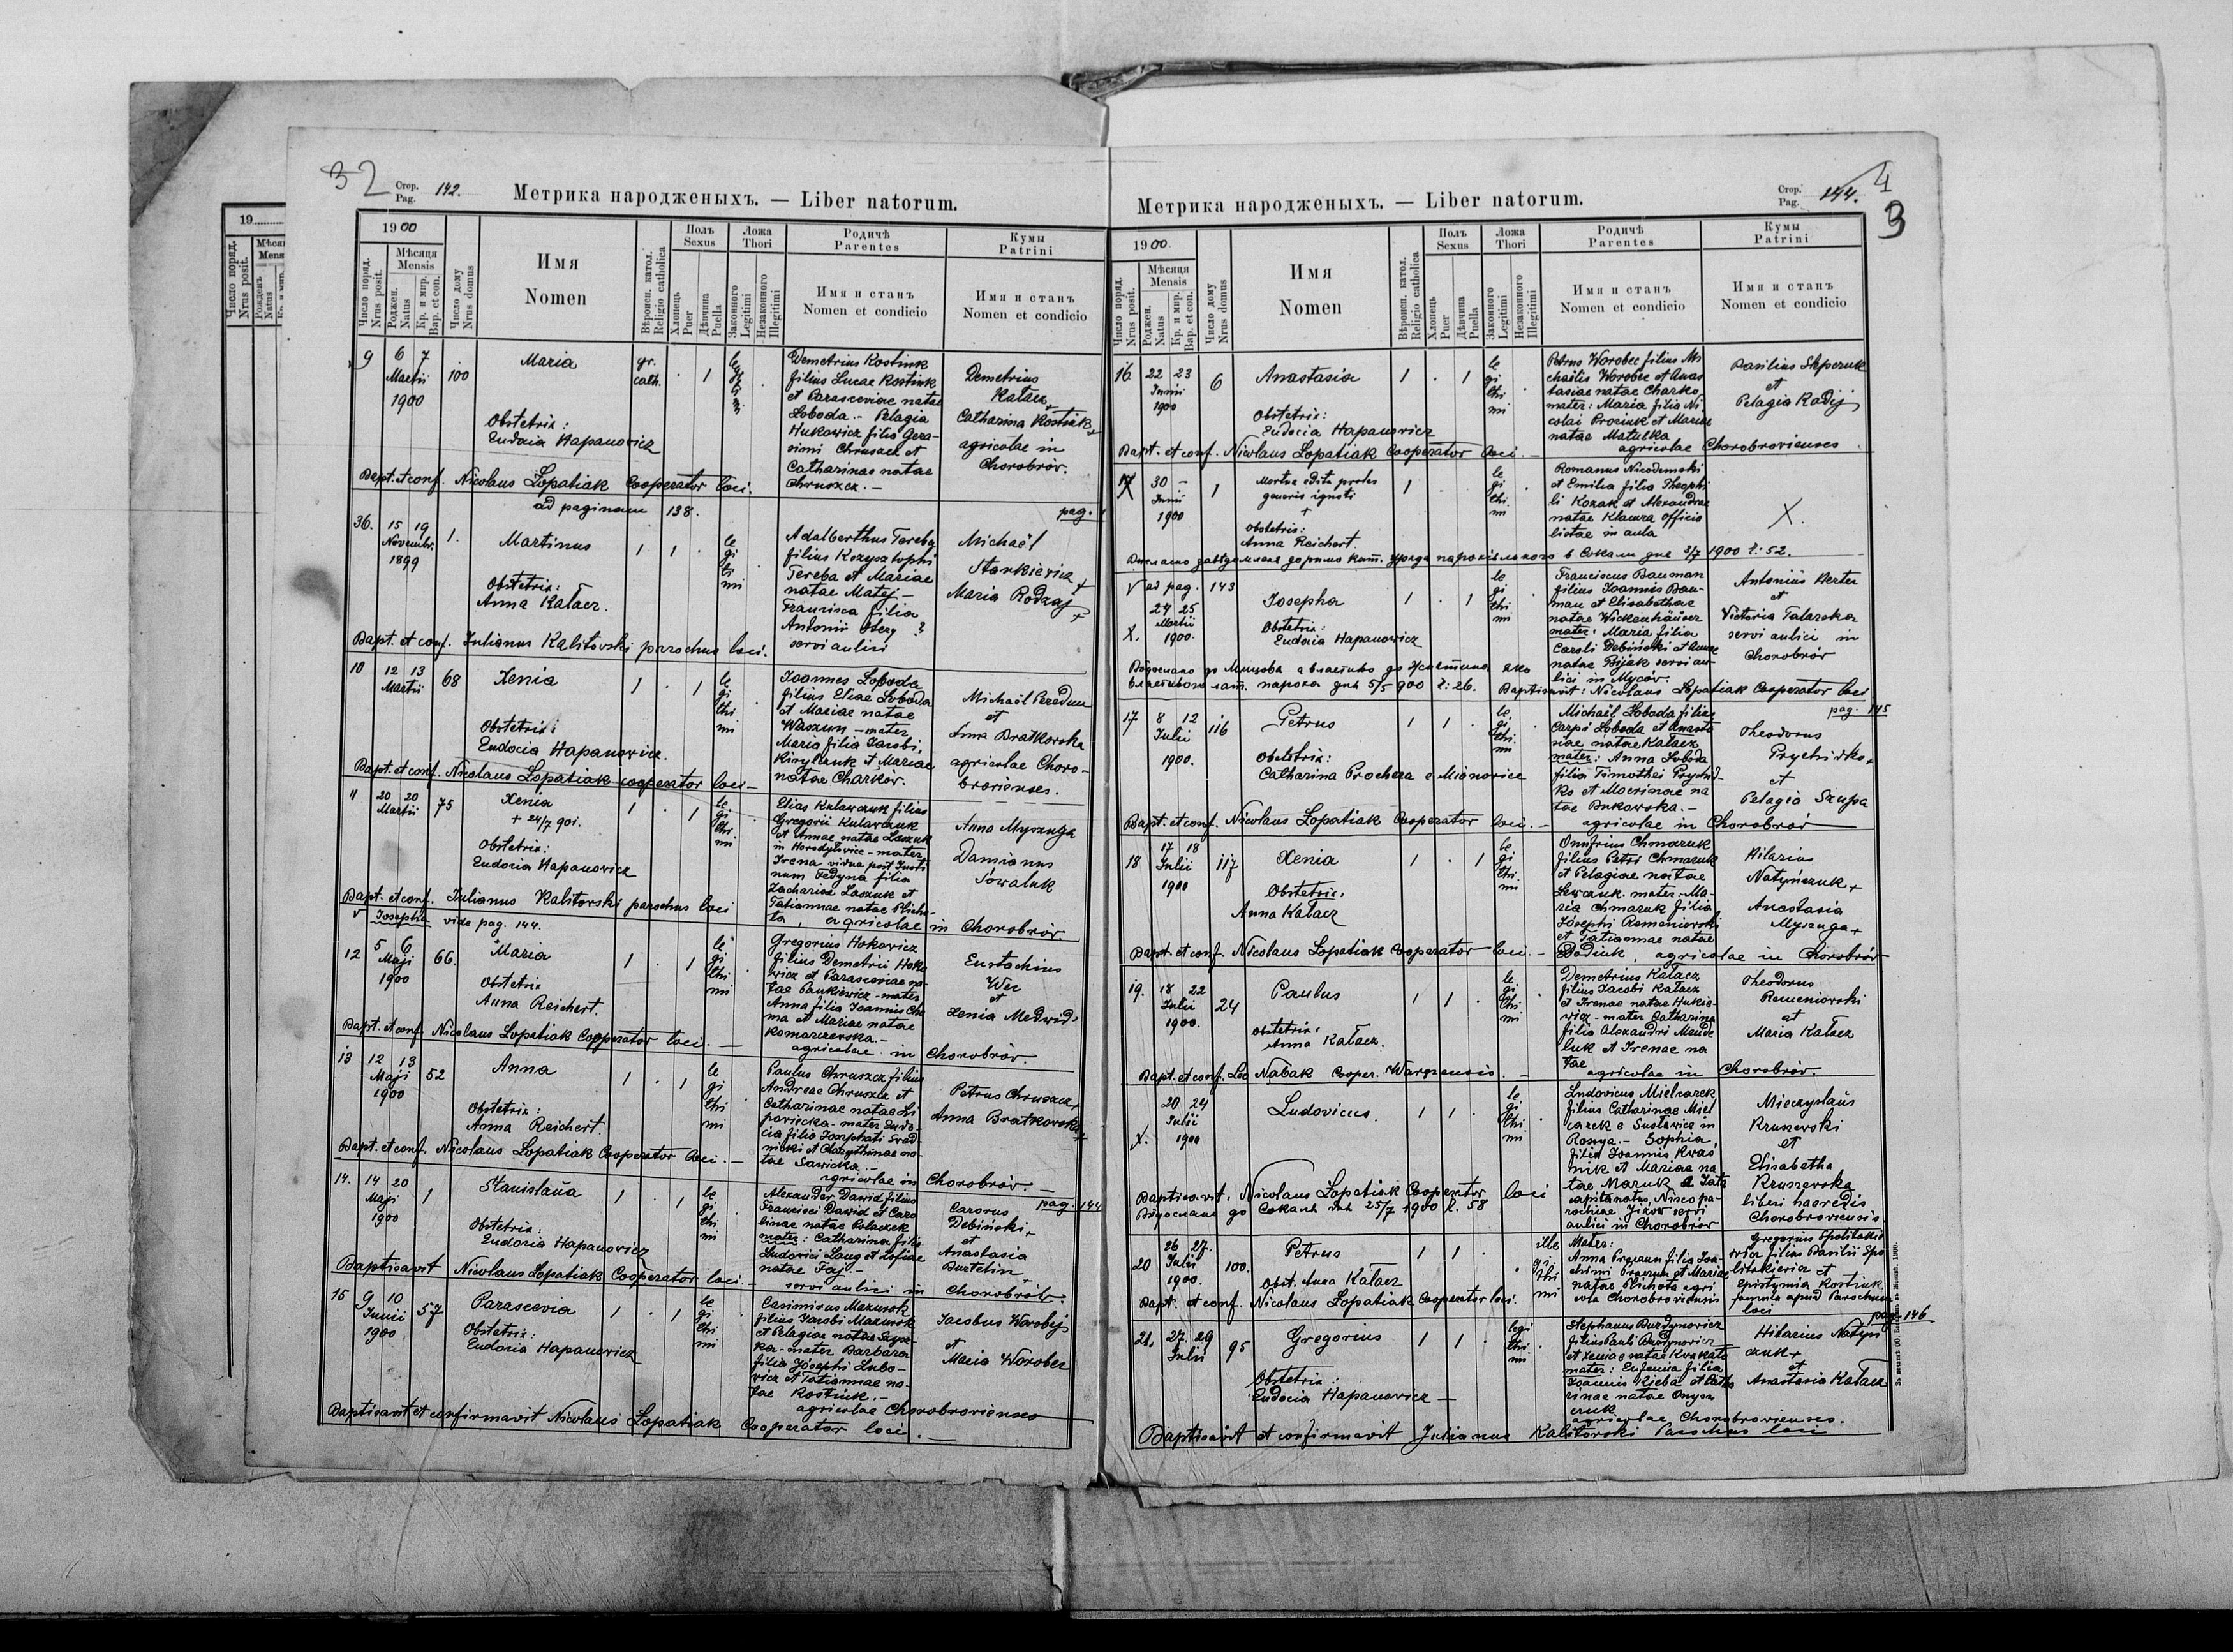 32
Стор. Pag. 142.
Метрика народженыхъ. — Liber natorum.
19
Число поряд. Nrus posit.
1900
Число поряд. Nrus posit.
Мѣсяця Mensis
Роджен. Natus
Кр. и мир. Bap. et con.
Число дому Nrus domus
Имя Nomen
Вѣроисп. катол. Religio catholica
Полъ Sexus
Хлопець Puer
Дѣвчина Puella
Ложа Thori
Законного Legitimi
Незаконного Illegitimi
Родичѣ Parentes
Имя и станъ Nomen et condicio
Кумы Patrini
Имя и станъ Nomen et condicio
9
6 7
Martii
1900
100
Maria
Obstetrix:
Eudocia Hapanowicz
gr. cath.
. 1
Demetrius Kostiuk
filius Lucae Kostiuk
et Parasceviae natae
Łoboda. – Pelagia
Hukowicz filia Gera-
simi Chruszcz et
Catharinae natae
Chruszcz. –
Demetrius
Kałacz +
Catharina Kostiuk +
agricolae in
Chorobrów.
Bapt. et conf. Nicolaus Łopatiak Cooperator loci.
ad paginam 138.
36.
15 19
Novembr.
1899
1.
Martinus
Obstetrix:
Anna Kałacz.
1 1 .
le gi ti mi
Adalberthus Tereba
filius Krzysztophi
Tereba et Mariae
natae Matej –
Francisca filia
Antonii
servi aulici
Michaël
Stankiewicz +
Maria Rodzaj +
Bapt. et conf. Julianus Kalitovski parochus loci.
10
12 13
Martii
68
Xenia
Obstetrix:
Eudocia Hapanowicz.
1 . 1
le gi thi mi
Joannes Łoboda
filius Eliae Łoboda
et Mariae natae
Waszun – mater
Maria filia Jacobi,
Kirylczuk et Mariae
natae Charkow.
Michaël Peredun
et
Anna Bratkowska
agricolae Choro-
brovienses.
Bapt. et conf. Nicolaus Łopatiak cooperator loci –
11
20 20
Martii
75
Xenia
+ 24/7 901.
Obstetrix:
Eudocia Hapanowicz
1 . 1
le gi thi mi
Elias Kulawczuk filius
Gregorii Kulawczuk
et Annae natae Laszuk
in Horodyłovice – mater
Irena vidua post Justi
num Fedyna filia
Zachariae Laszuk et
Tatiannae natae Plicho-
ta, agricolae in Chorobrów.
Anna Myszuga
Damianus
Sowaluk
Bapt. et conf. Julianus Kalitovski parochus loci
v Josepha vide pag. 144.
12
5 6
Maji
1900
66.
Maria
Obstetrix
Anna Reichert.
1 . 1
le gi thi mi
Gregorius Hokowicz
filius Demetrii Hoko
wicz et Parasceviae na-
tae Pankiewicz – mater
Anna filia Joannis Cho
ma et Mariae natae
Komarzewska. –
agricolae in Chorobrów.
Eustachius
Wer
et
Xenia Medwid'
Bapt. et conf. Nicolaus Łopatiak Cooperator loci. –
13
12 13
Maji
1900
52
Anna
Obstetrix:
Anna Reichert.
1 . 1
le gi thi mi
Paulus Chruszcz filius
Andreae Chruszcz et
Catharinae natae Li
powiecka – mater Eudo-
cia filia Josaphati Sred-
nicki et Charythinae na-
tae Sawicka. –
agricolae in Chorobrów. –
Petrus Chruszcz +
Anna Bratkowska +
Bapt. et conf. Nicolaus Łopatiak Cooperator loci. –
14.
14 20
Maji
1900
1
Stanislaüa
Obstetrix:
Eudocia Hapanowicz
1 . 1
le gi thi mi
Alexander Dawid filius
Francisci Dawid et Caro
linae natae Polaczek
mater: Catharina filia
Ludovici Lang et Sofiae
natae Faj. –
servi aulici in Chorobrów.
pag. 144
Carorus
Debiński +
et
Anastasia
Bursztin +
Baptisavit Nicolaus Łopatiak Cooperator loci. –
15
9 10
Junii
1900
57
Parascevia
Obstetrix:
Eudocia Hapanowicz
1 . 1
le gi thi mi
Casimirus Mazurok
filius Jacobi Mazurok
et Pelagiae natae
ka – mater Barbara
filia Josephi Łubo-
wicz et Tatiannae na-
tae Kostiuk. –
agricolae Chorobrovienses
Jacobus Worobij
et
Maria Worobec
Baptisavit et confirmavit Nicolaus Łopatiak Cooperator loci. –
Метрика народженыхъ. — Liber natorum.
Стор. Pag. 144.
4
3
1900.
Число поряд. Nrus posit.
Мѣсяця Mensis
Роджен. Natus
Кр. и мир. Bap. et con.
Число дому Nrus domus
Имя Nomen
Вѣроисп. катол. Religio catholica
Полъ Sexus
Хлопець Puer
Дѣвчина Puella
Ложа Thori
Законного Legitimi
Незаконного Illegitimi
Родичѣ Parentes
Имя и станъ Nomen et condicio
Кумы Patrini
Имя и станъ Nomen et condicio
16
22 23
Junii
1900
6
Anastasia
Obstetrix:
Eudocia Hapanowicz
1 . 1
le gi thi mi
Petrus Worobec filius Mi
chaëlis Worobec et Anas
tasiae natae Charko,
mater: Maria filia Ni-
colai Prociuk et Mariae
natae Matulka
agricolae Chorobrovienses
Basilius Stepczuk
et
Pelagia Kadij
Bapt. et conf. Nicolaus Łopatiak Cooperator loci. –
17
30 –
Junii
1900
1
Mortua edita proles
generis ignoti
+
Obstetrix:
Anna Reichert.
1
le gi thi mi
Romanus Nicodemski
et Emilia filia Theophi
li Kozak et Alexandrae
natae Klamra officia
listae in aula
X.
в Сокали дня 2/7 1900 Ч: 52.
v ad pag. 143
24 25
Martii
X. 1900.
Josepha
Obstetrix:
Eudocia Hapanowicz
1 . 1
le gi thi mi
Franciscus Bauman
filius Joannis Bau-
man et Elisabethae
natae Wickenhäuser
mater: Maria filia
Caroli Debiński et Annae
natae Bijak servi au-
lici in Myców.
Antonius Herter
et
Victoria Talarska
servi aulici in
Chorobrów
пароха дня 5/5 900 Ч: 26.
Baptisavit: Nicolaus Łopatiak Cooperator loci
pag. 145
17
8 12
Julii
1900.
116
Petrus
Obstetrix:
Catharina Prochera e Mianovice
1 1 .
le gi thi mi
Michaël Łoboda filius
Carpi Łoboda et Anasta
siae natae Kałacz
mater: Anna Łoboda
filia Timothei Prychid-
ko et Macrinae na
tae Bukowska. –
agricolae in Chorobrów
Theodorus
Prychidko +
et
Pelagia Szupa
Bapt. et conf. Nicolaus Łopatiak Cooperator loci. –
18
17 18
Julii
1900
117
Xenia
Obstetrix:
Anna Kałacz
1 . 1
le gi thi mi
Onufrius Chmaruk
filius Petri Chmaruk
et Pelagiae natae
Sewczuk. mater – Ma-
ria Chmaruk filia
Josephi Remeniowski
et Tatiannae natae
Dodiuk, agricolae in Chorobrów
Hilarius
Natyńczuk +
Anastasia
Myszuga +
Bapt. et conf. Nicolaus Łopatiak Cooperator loci. –
19.
18 22
Julii
1900.
24
Paulus
Obstetrix:
Anna Kałacz.
1 1 .
le gi thi mi
Demetrius Kałacz
filius Jacobi Kałacz
et Irenae natae Hukie-
wicz – mater Catharina
filia Alexandri Mende
luk et Irenae na
tae
agricolae in Chorobrów.
Theodorus
Remeniowski
et
Maria Kałacz
Bapt. et conf. Leo Načak Cooper. Warężensis. –
20 24
Julii
X. 1900
Ludovicus.
1 1 .
le gi thi mi
Ludovicus Mielcarek
filius Catharinae Miel
carek e Sustawice in
Rosya. – Sophia,
filia Joannis Kwaś
nik et Mariae na
tae Mazuk a Jata
capitanatus Nisco pa-
rochiae Jżów servi
aulici in Chorobrów
Mieczyslaüs
Kruszewski
et
Elisabetha
Kruszewska
liberi haeredis
Chorobroviensis
Baptisavit: Nicolaus Łopatiak Cooperator loci
Вôдослано до Сокаля дня 25/7 1900 Ч. 58
20
26 27.
Julii
1900.
100.
Petrus
Obst. Anna Kałacz
1 1 .
ille gi thi mi
Mater:
Anna Proczun filia Joa-
chimi Proczun et Mariae
natae Plichota agri-
cola Chorobroviensis
Gregorius Spolitakie
wicz filius Basilii Spo
litakiewicz et
Epistymia Kostiuk
famula apud Parochum
loci
Bapt. et conf. Nicolaus Łopatiak Cooperator loci.
pag. 146
21.
27 29
Julii
95
Gregorius
Obstetrix:
Eudocia Hapanowicz –
1 1 .
legi thi mi
Stephanus Burdynowicz
filius Pauli Burdynowicz
et Xeniae natae Kwakała
mater: Eufemia filia
Joannis Kieba et Catha
rinae natae Onysz
czuk
agricolae Chorobrovienses.
Hilarius Natyn
czuk +
et
Anastasia Kałacz
Baptisavit et confirmavit Julianus Kalitovski Parochus loci